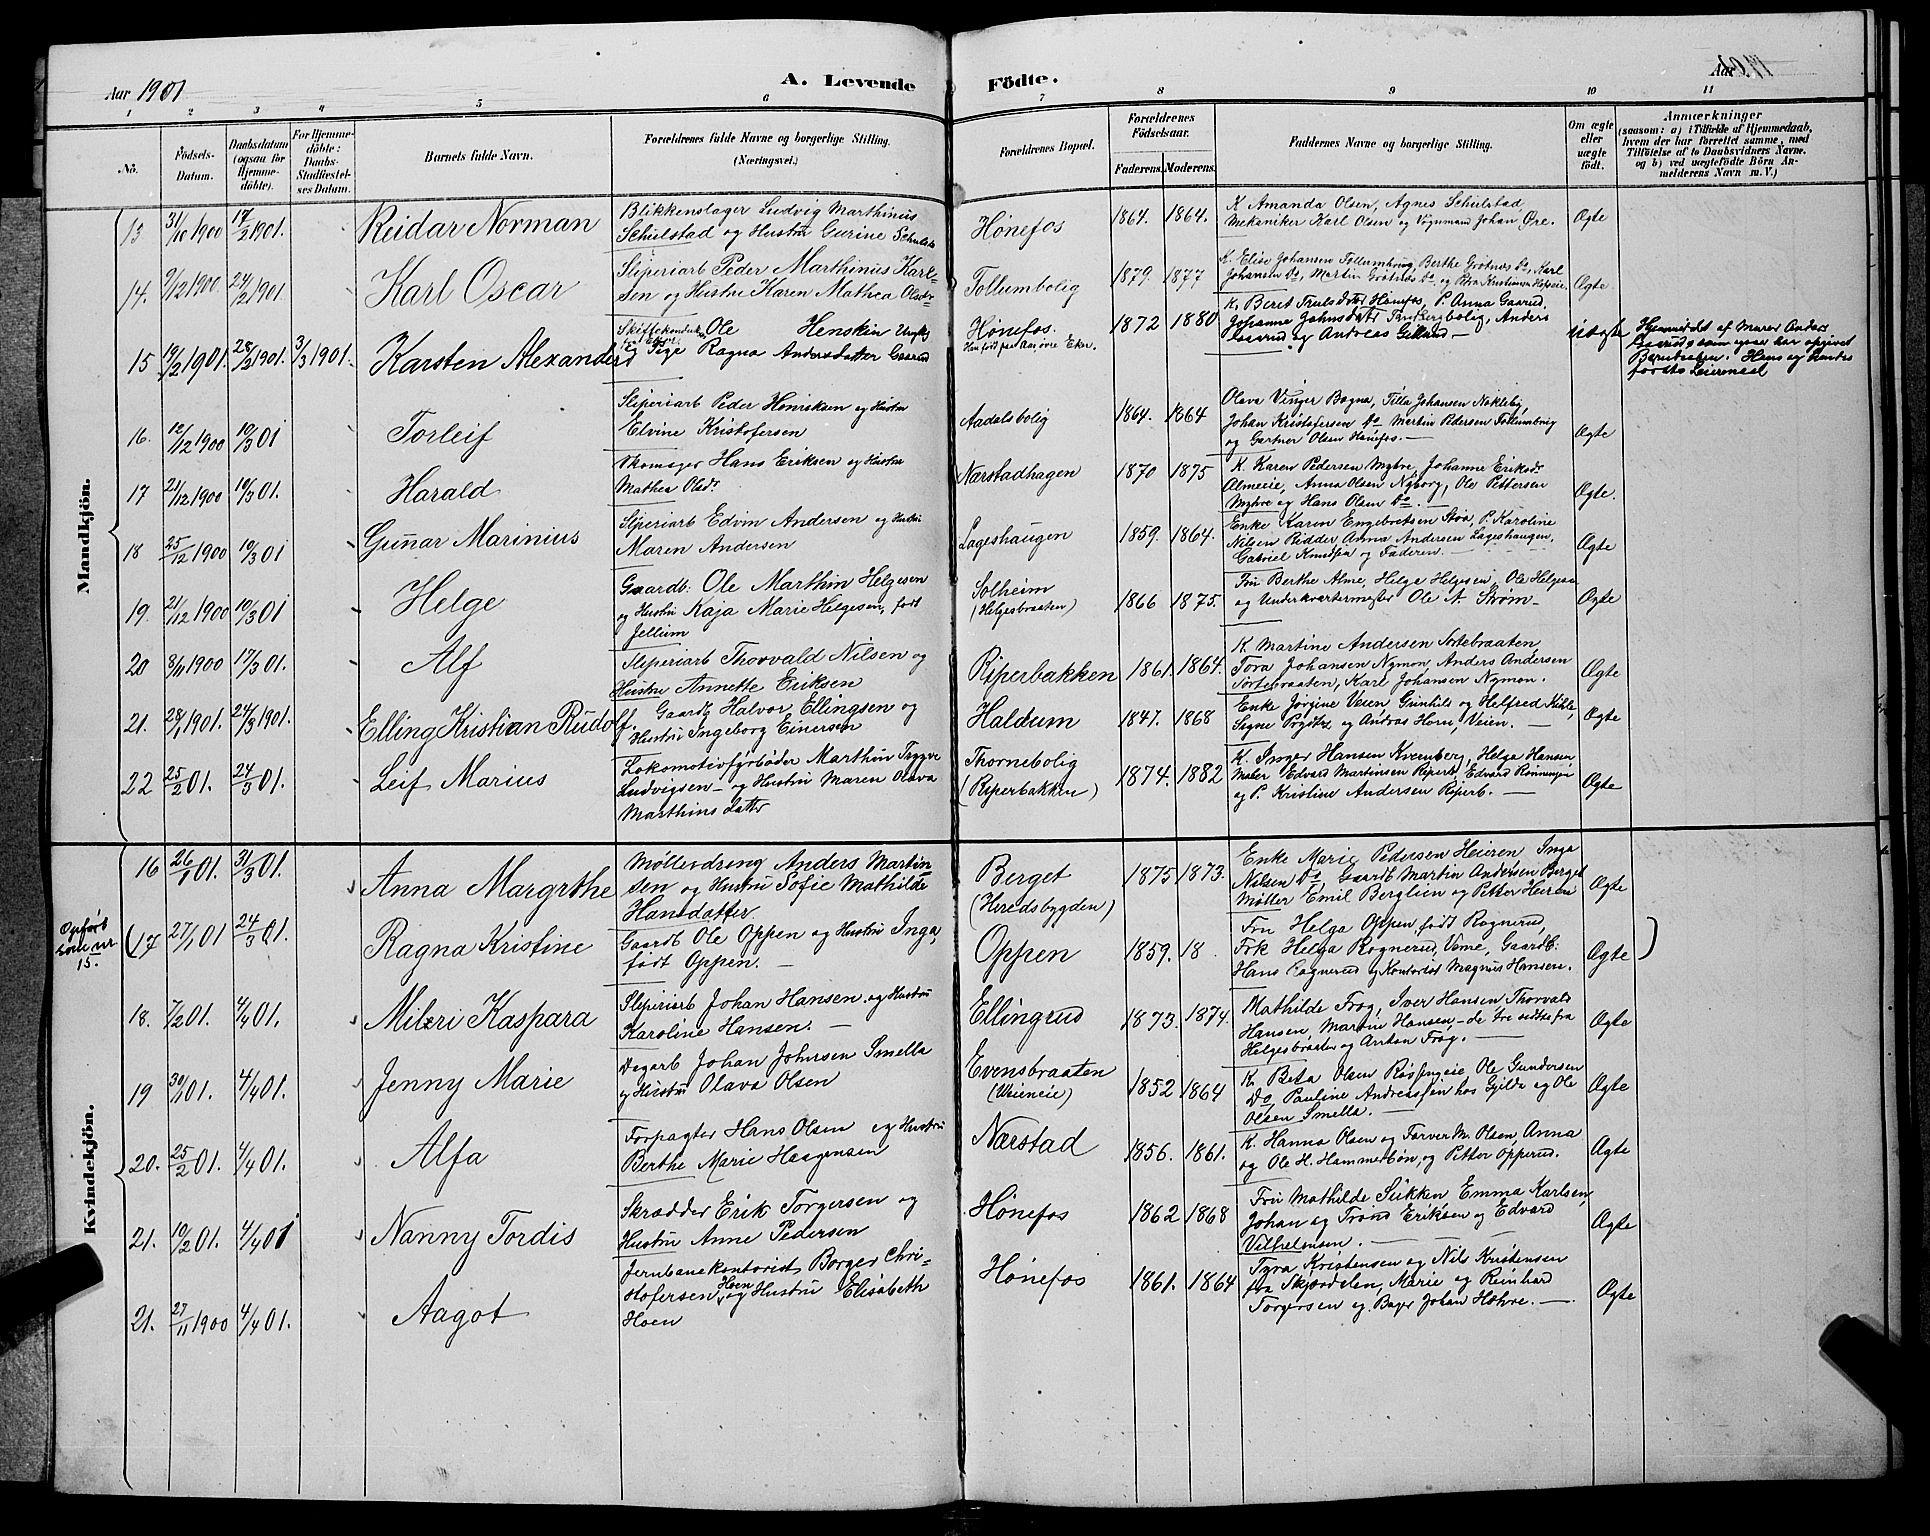 Aar 1901
A. Levende
Födte.
Aar
1 2 3 4 5 6 7 8 9 10 11
No.
Födsels-Datum.
Daabsdatum (ogsaa för Hjemme-döbte).
For Hjemme-döbte: Daabs-Stadfæstel-ses Datum.
Barnets fulde Navn.
Forældrenes fulde Navne og borgerlige Stilling. (Næringsvei.)
Forældrenes Bopæl.
Forældrenes Födselsaar.
Faderens. Moderens.
Faddernes Navne og borgerlige Stilling.
Om ægte eller uægte födt.
Anmærkninger
(saasom: a) i Tilfælde af Hjemmedaab,
hvem der har forrettet samme, med
Tilföielse af to Daabsvidners Navne.
og b) ved uægtefödte Börn An-
melderens Navn m. V.)
Mandkjön.
13 31/10 1900 17/2 1901. Reidar Norman
Blikkenslager Ludvig Marthinus
Schulstad og Hustru Gurine
Hönefos 1864. 1864.
K Amanda Olsen, Agnes Schulstad
Mekaniker Karl Olsen og Vognmand Johan Øre.
Ægte
14. 9/12 1900 24/2 1901 Karl Oscar
Sliperiarb Peder Marthinus Karl-
sen og Hustru Karen Mathea Olsdr
Follumbolig 1879. 1877
K. Elise Johansen Follumbrug, Berthe Grötnes Do, Karl
Johansen Do, Martin Grötnæs Do, og Petra Kristiansen
Ægte.
15 19/2 1901. 28/2 1901. 3/3 1901. Karsten Alexander
Ole Henskin
og Pige Ragna Andersdatter Gaarud
Hönefos. 1872 1880
K. Beret Hönefos, P. Anna Gaarud,
Johanne Johnsdatr Anders
Gaarud og Andreas
Uægte
Hjemmedöbt af Murer Anders
Gaarud som ogsaa har opgivet
Barnefaderen. Hans og hendes
förste Leiermaal
16. 12/12 1900 10/3 01 Torleif
Sliperiarb Peder Henriksen og Hustru
Elvine Kristofersen
Aadalsbolig 1864. 1864
Olava Vinger Bagna, Tilla Johansen Nakleby,
Johan Kristofersen Do Martin Pedersen Follumbrug
og Gartner Olsen Hönefos.
Ægte
17 21/12 1900 10/3 01. Harald
Skomager Hans Eriksen og Hustru
Mathea Olsdr.
Nærstadhagen 1870 1875
K. Karen Pedersen Myhre, Johanne Eriksdr
Almeie, Anna Olsen Nyborg, Ole Pettersen
Myhre og Hans Olsen Do.
Ægte.
18 25/12 1900 10/3 01 Gunar Marinius
Sliperiarb Edvin Andersen og Hustru
Maren Andersen
Lageshaugen 1859. 1864.
Enke Karen Engebretsen Støa, P. Karoline
Nilsen Ridder Anna Andersen Lageshaugen,
Gabriel Knudsen og Faderen.
Ægte
19. 21/12 1900 10/3 01 Helge
Gaardb. Ole Marthin Helgesen
og Hustru Kaja Marie Helgesen, født
Jellum
Solheim
(Helgesbraaten) 1866 1875.
Fru Berthe Alme, Helga Helgesen, Ole Helgesen
og Underkvartermester Ole A. Strøm
Ægte
20 8/11 1900 17/3 01. Alf
Sliperiarb Thorvald Nilsen og
Hustru Annette Eriksen
Riperbakken 1861. 1864.
K. Martine Andersen Sortebraaten,
Tora Johansen Nymon, Anders Andersen
Sortebraaten, Karl Johansen Nymon.
Ægte
21. 28/1 1901. 24/3 1901. Elling Kristian Rudolf.
Gaardb Halvor Ellingsen og
Hustru Ingeborg Einersen
Haldum 1847. 1868
Enke Jörgine Veien Gunhild og Helfred Kihle,
Signe og Andras Horn, Veien.
Ægte
22 25/2 01. 24/3 01. Leif Marius
Lokomotivfyrbøder Marthin Trygve
Ludvigsen og Hustru Maren Olava
Marthinsdatter
Thornebolig
(Riperbakken) 1874. 1882
K. Inger Hansen Kvernberg, Helga Hansen
Maler Edvard Martinsen Riperb, Edvard Rönningen
og P. Kristine Andersen Riperb.
Ægte
Kvindekjön.
16 26/1 01. 31/3 01. Anna Margrthe
Möllerdreng Anders Martin
sen og Hustru Sofie Mathilde
Hansdatter.
Berget
(Heredsbygden) 1875 1873.
Enke Marie Pedersen Heieren Inga
Nilsen Do Gaardb Martin Andersen Berget
Møller Emil Berglien og Petter Heieren
Ægte
Opført
som nr
15.
(17 27/1 01 24/3 01. Ragna Kristine
Gaardb Ole Oppen og Hustru Inga,
født Oppen.
Oppen 1859. 18
Fru Helga Oppen, født Rognerud,
Frk Helga Rognerud, Veme, Gaardb.
Hans Rognerud og Kontorist Magnus Hansen.
Ægte )
18. 7/2 01. 4/4 01. Milzri Kaspara
Sliperiarb Johan Hansen og Hustru
Karoline Hansen.
Ellingrud 1873. 1874.
Mathilde Frog, Iver Hansen, Thorvald
Hansen, Martin Hansen, de tre sidste fra
Helgesbraaten og Anton Frog.
Ægte
19 30/1 01. 4/4 01. Jenny Marie
Dagarb Johan Johnsen Smella
og Hustru Olava Olsen
Evensbraaten
(Veieneie) 1852 1864
K. Beta Olsen Ole Gundersen
Do, Pauline Andreassen hos Gjilda og Ole
Olsen Smella.
Ægte
20. 25/2 01. 4/4 01. Alfa
Forpagter Hans Olsen og Hustru
Berthe Marie Haagensen
Nærstad 1856. 1861.
K. Hanna Olsen og Farver M. Olsen, Anna
og Ole H. Hammerbøn, og Petter Opperud.
Ægte
21. 10/2 01. 4/4 01 Nanny Tordis
Skrædder Erik Torgersen og
Hustru Anne Pedersen
Hönefos 1862 1868
Fru Mathilde Sükken, Emma Karlsen,
Johan og Trond Eriksen og Edvard
Vilhelmsen.
Ægte
21. 27/11 1900 4/4 01. Aagot
Jernbanekontorist Borger Chri-
stofersen Hoen og Hustru Elisabeth
Hoen
Hönefos 1861. 1864
Tyra Kristensen og Nils Kristensen
fra Skjærdalen, Marie og Reinhard
Torgersen og Bager Johan Hohre.
Ægte